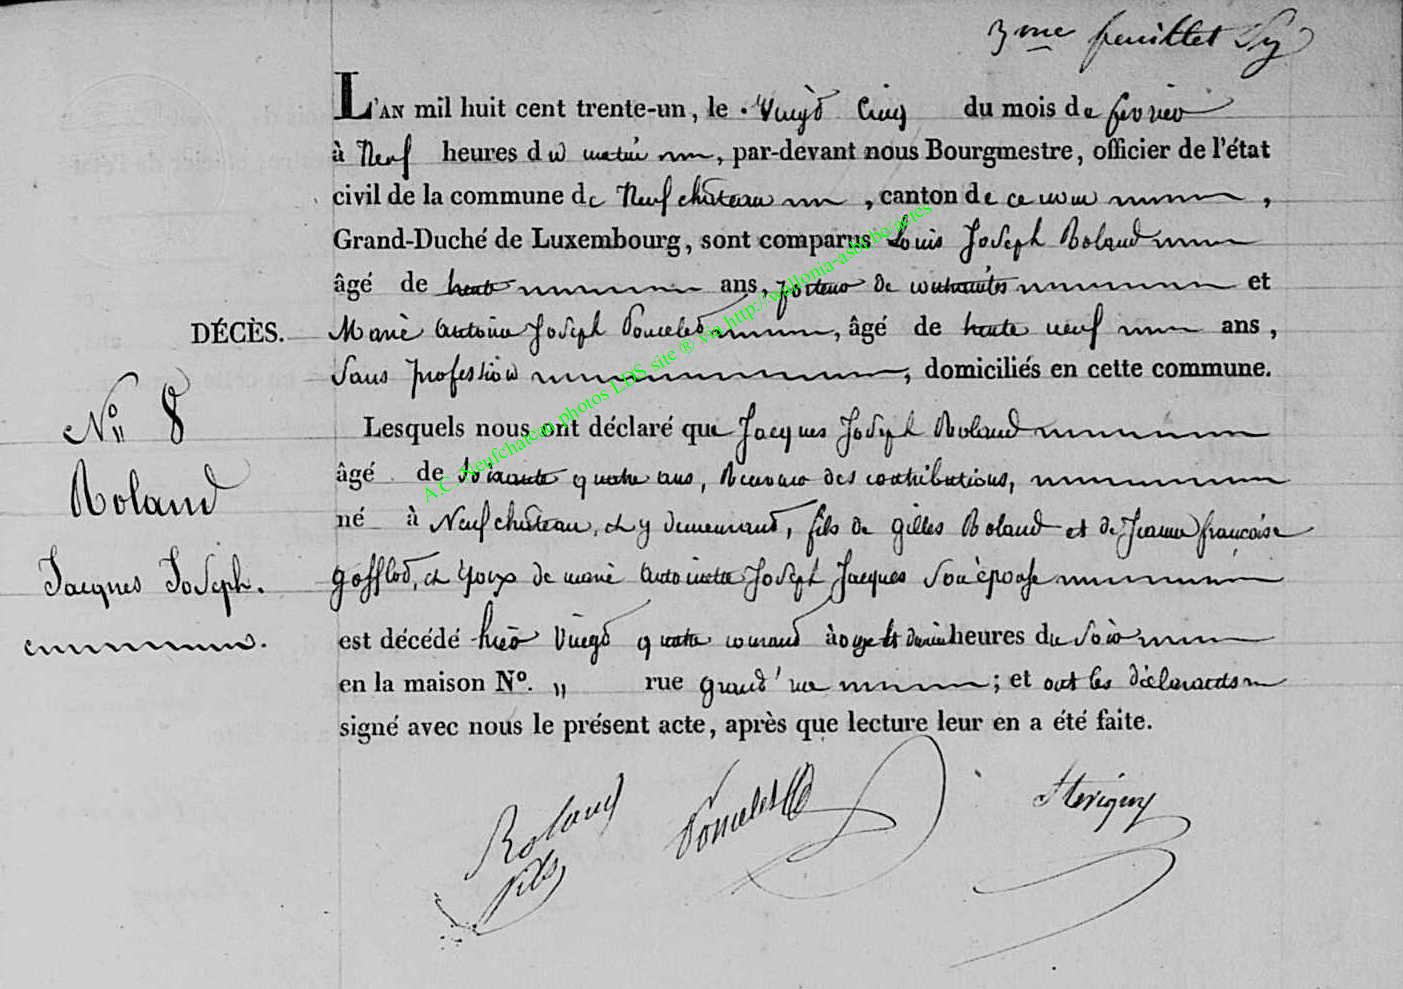 3me feuillet Sy
L'AN mil huit cent trente-un, le vingt cinq du mois de fevrier
à neuf heures du matin, par-devant nous Bourgmestre, officier de l'état
civil de la commune de Neufchâteau, canton de ce nom,
Grand-Duché de Luxembourg, sont comparus Louis Joseph Roland
âgé de trente ans, porteur de contraintes et
DÉCÈS.
Marie Antoine Joseph Poncelet, âgé de trente neuf ans,
Sans profession, domiciliés en cette commune.
N° 8
Roland
Jacques Joseph.
Lesquels nous ont déclaré que Jacques Joseph Roland
âgé de soixante quatre ans, Receveur des contributions,
né à Neufchâteau, et y demeurant, fils de gilles Roland et de Jeanne françoise
gofflot, et Epoux de marie antoinette Joseph Jacques son épouse
est décédé hier vingt quatre courant à onze et demie heures du soir
en la maison N°. " rue grand'rue; et ont les déclarants
signé avec nous le présent acte, après que lecture leur en a été faite.
Roland fils
Poncelet
A.C. Neufchateau photos LDS site ® via http://wallonia-asbl.be/actes